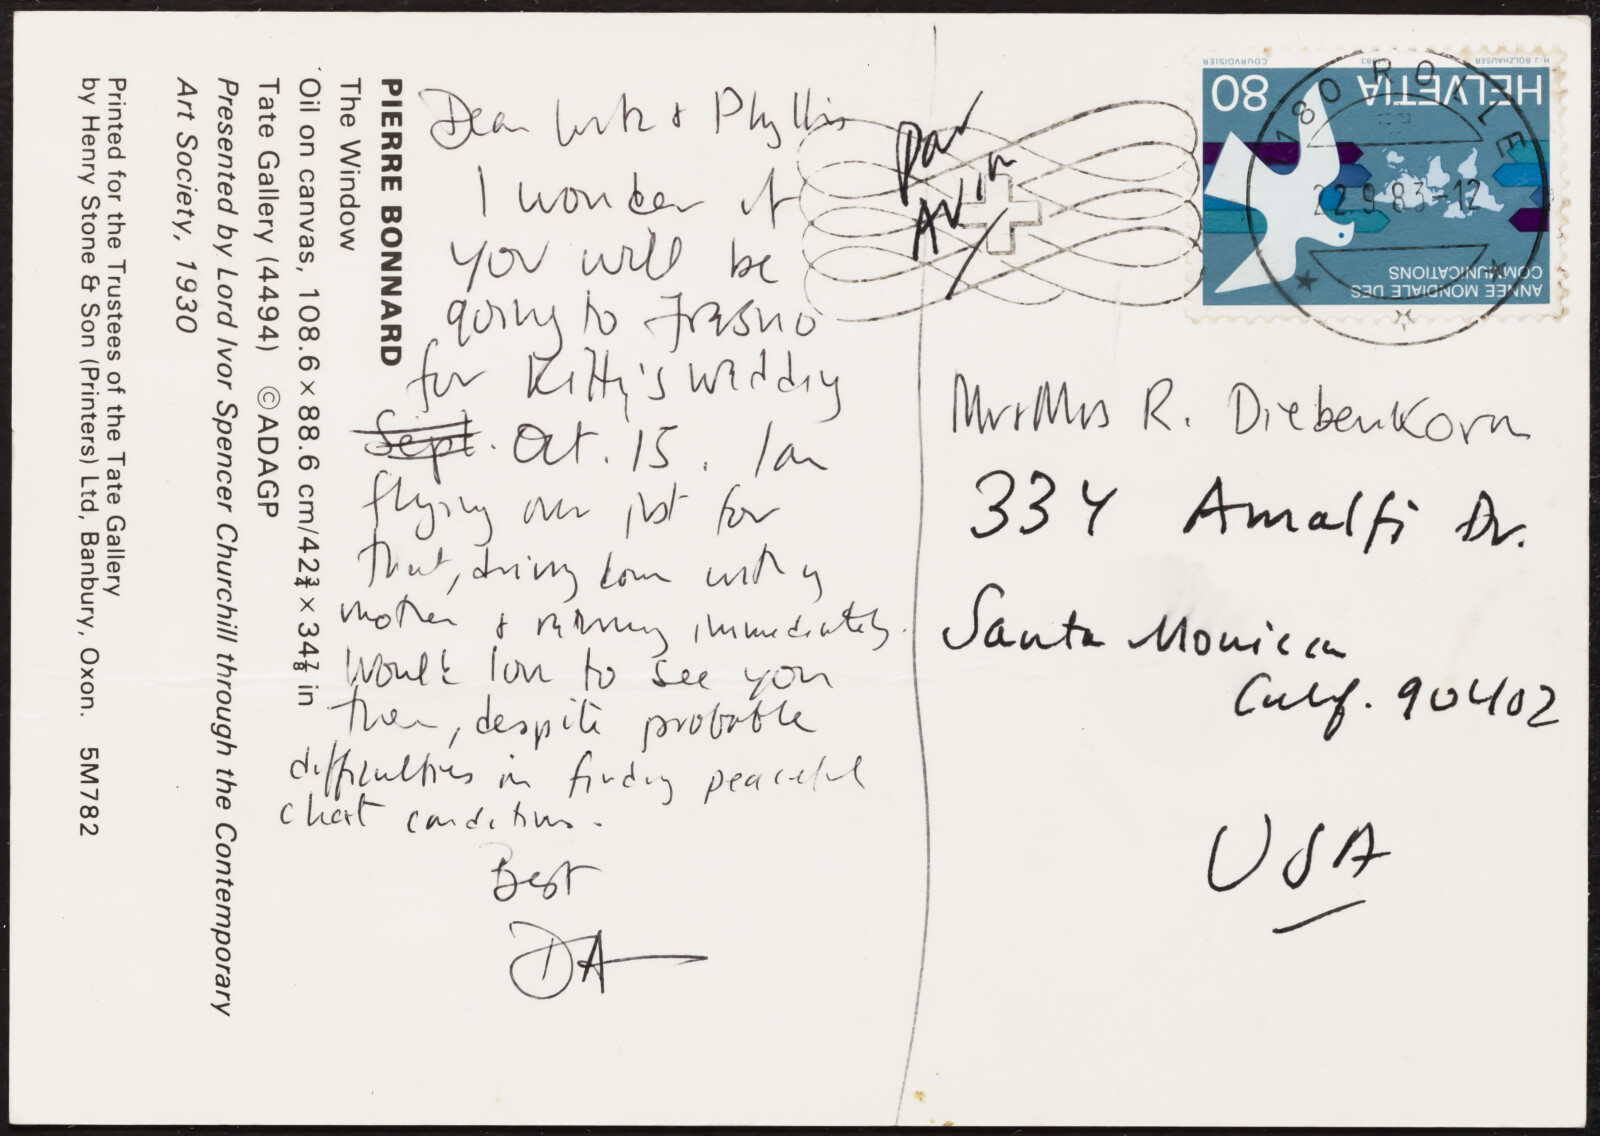 PIERRE BONNARD
The Window
Oil on canvas, 108.6 × 88.6 cm/42¾ × 34⅞ in
Tate Gallery (4494) ©ADAGP
Presented by Lord Ivor Spencer Churchill through the Contemporary
Art Society, 1930
Printed for the Trustees of the Tate Gallery
by Henry Stone & Son (Printers) Ltd, Banbury, Oxon. 5M782
Dear & Phyllis
I wonder if
you will be
going to Fresno
for Kitty's wedding
Sept. Oct. 15. I am
flying over just for
that, driving down with my
mother & returning immediately.
Would love to see you
then, despite probable
difficulties in finding peaceful
chat conditions.
Best
DA
Par
Avion
1180 ROLLE
22.9.83-12
HELVETIA
80
ANNÉE MONDIALE DES
COMMUNICATIONS
COURVOISIER
H.-J. BOLZHAUSER
Mr + Mrs R. Diebenkorn
334 Amalfi Dr.
Santa Monica
Calif. 90402
USA